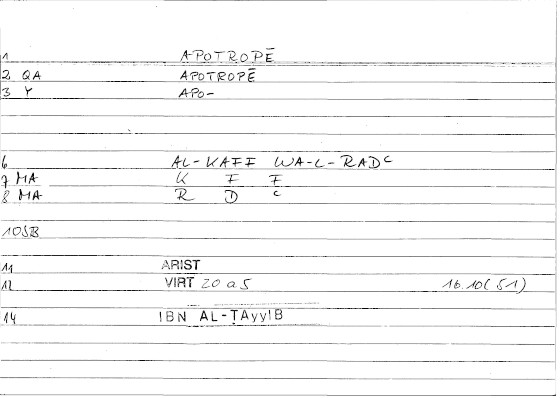 1 APOTROPĒ
2 QA APOTROPĒ
3 Y APO-
6 AL-KAFF WA-L-RADC
7 MA K F F
8 MA R D C
10SB
11 ARIST
12 VIRT 20 a 5 16.10(51)
14 IBN AL-ṬAyyIB